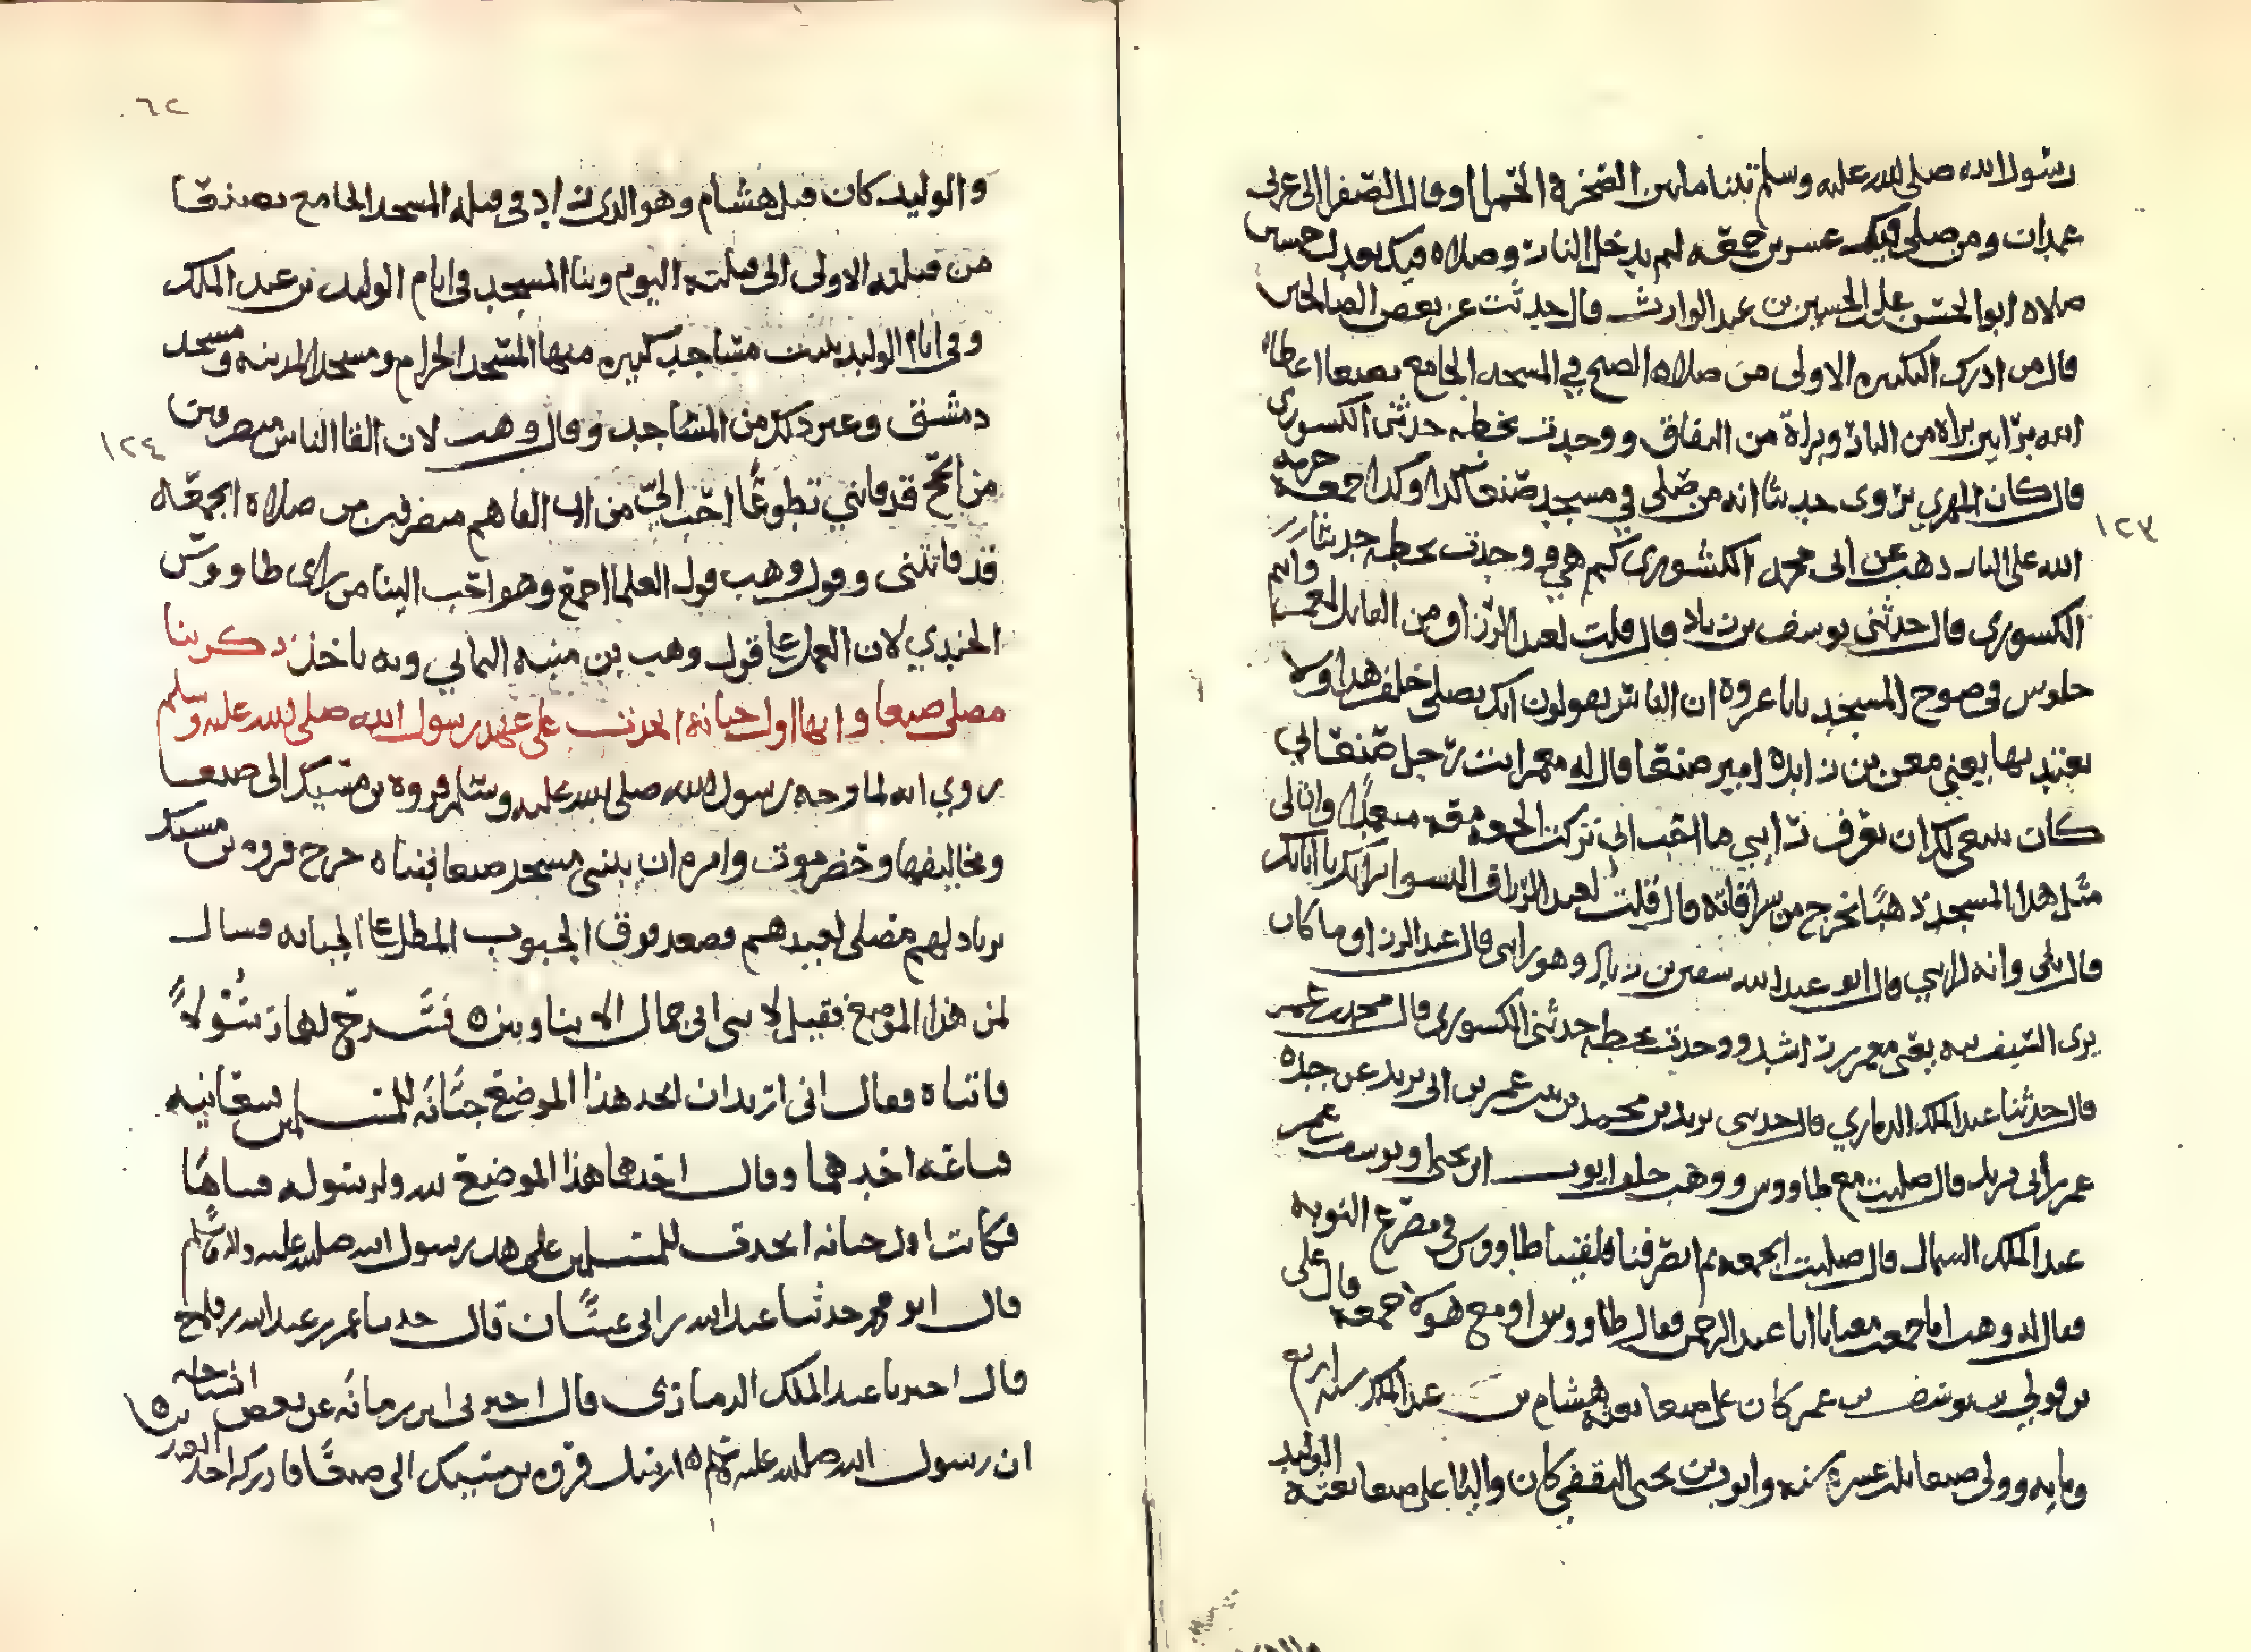 رسول الله صلى الله عليه وسلم بنا ما بين الصخرة الخمل او قال الصفرا الى غربي
غمدان ومن صلى فيك عشرين جمعه لم يدخل النار وصلاه فيك بعدل خمسين
صلاه ابو الحسن علي بن الحسين بن عبد الوارث قال حدثت عن بعض الصالحين
قال من ادرك التكبيره الاولى من صلاه الصبح في المسجد الجامع بصنعا اعطاه
الله براتين براه من النار وبراة من النفاق ووجدت بخطه حدثني الكشوري
قال كان المهري يروى حديثا انه من صلى في مسجد صنعا كذا وكذا جمعه حرمه
الله على النار ذهب عن ابى محمد الكشوري كم هي ووجدت بخطه حدثنا
الكشوري قال حدثنى يوسف بن زياد قال قلت لعبد الرزاق من القائل لمعمر وانتم
جلوس في صوح المسجد يابا عروة ان الناس يقولون انك تصلى خلف هذا ولا
تعتد بها يعني معن بن زايدة امير صنعا قال له معمر انت رجل صنعاني
كان ينبغى لك ان تعرف رايي ما احب انى تركت الجمعه معه متعمدا وان لى
مثل هذا المسجد ذهبا نخرج من شرافاته قال قلت لعبد الرزاق
قال بلى وانه لرايي قال ابو عبد الله وهو رايى قال عبد الرزاق وما كان
يرى السيف يعني معمر بن راشد ووجدت بخطه حدثني الكشوري قال محمد بن عمر
قال حدثنا عبد الملك الذماري قال حدثنى يزيد بن محمد بن عمر بن ابى يزيد عن جده
عمر بن ابى يزيد قال صليت مع طاووس ووهب خلف ايوب ابن يحيى او يوسف بن عمر
عبد الملك قال صليت الجمعه ثم انصرفنا فلقينا طاووس في مصرع النوبه
فقال له وهب اما جمعت معنا يا ابا عبد الرحمن فقال طاووس او مع هولا جمعه قال على
بن يوسف بن عمر كان على صنعا بعثه هشام بن عبد الملك سنه اربع
ومايه وولى صنعا ثلث عشرة سنه وايوب بن يحيى الثقفي كان واليا على صنعا بعثه الوليد
والوليد كان قبل هشام وهو الذى زاد في قبله المسجد الجامع بصنعا
من قبلته الاولى الى قبلته اليوم وبنا المسجد في ايام الوليد بن عبد الملك
وفى ايام الوليد بنيت مساجد كبيره منها المسجد الحرام ومسجد المدينه ومسجد
دمشق وغير ذلك من المساجد وقال وهب لان القا الناس منصرفين
من الحج قد فاتني تطوعا احب الي من ان القاهم منصرفين من صلاه الجمعه
قد فاتتنى وقول وهب قول العلما اجمع وهو احب الينا من راى طاووس
الجندي لان العمل على قول وهب بن منبه اليماني وبه ناخذ ذكر بنا
مصلى صنعا وانها اول جبانه اتخذت على عهد رسول الله صلى الله عليه وسلم
روي انه لما وجه رسول الله صلى الله عليه وسلم فروه بن مسيك الى صنعا
ومخاليفها وحضرموت وامره ان يبنى مسجد صنعا فبناه خرج فروه بن مسيك
يرتاد لهم مصلى لعيدهم فصعد فوق الجبوب المطل على الجبانه فسال
لمن هذا الموضع فقيل لابني ابى جمال الابناوين ٥ فسرح لهما رسولا
فاتياه فقال انى اريد ان اتخذ هذا الموضع جبانه للمسلمين بيعانيه
ساعه اخدهما وقال احدهما هذا الموضع لله ولرسوله
فكانت اول جبانه اتخذت للمسلمين على عهد رسول الله صلى الله عليه وسلم
قال ابو محمد حدثنا عبد الله بن ابى غسان قال حدثنا عمر بن عبد الله بن فليح
قال اخبرنا عبد الملك الذماري قال اخبرنى ابن رمانه عن بعض اشياخه
ان رسول الله صلى الله عليه وسلم ارسل فروه بن مسيك الى صنعا فادركه احد
٦٢
١٢٣
١٢٤